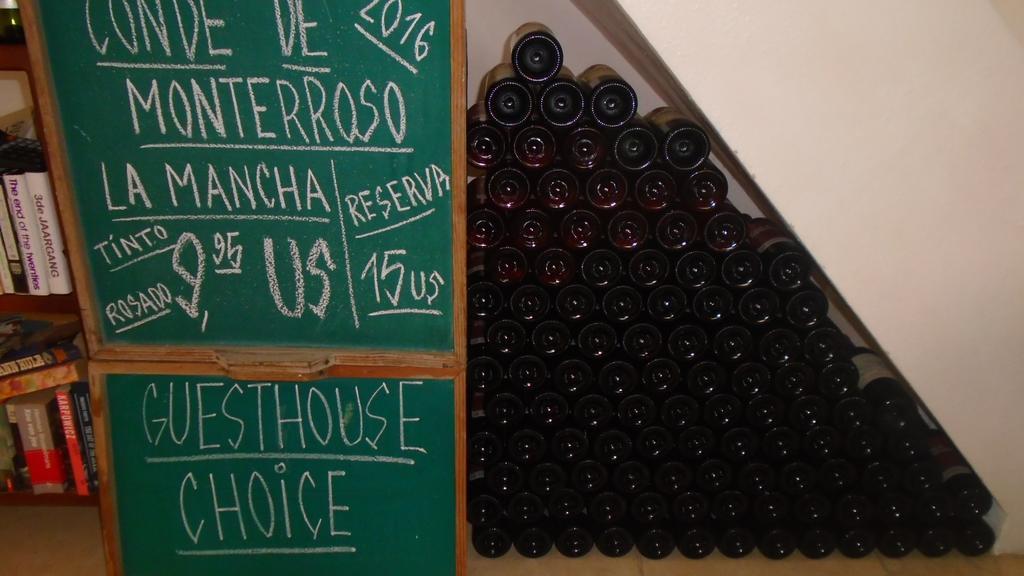 CONDE DE 2016
MONTERROSO
LA MANCHA
RESERVA
TINTO
ROSADO
9,95 US
15 US
GUESTHOUSE
CHOICE
The end of the twenties
3de JAARGANG